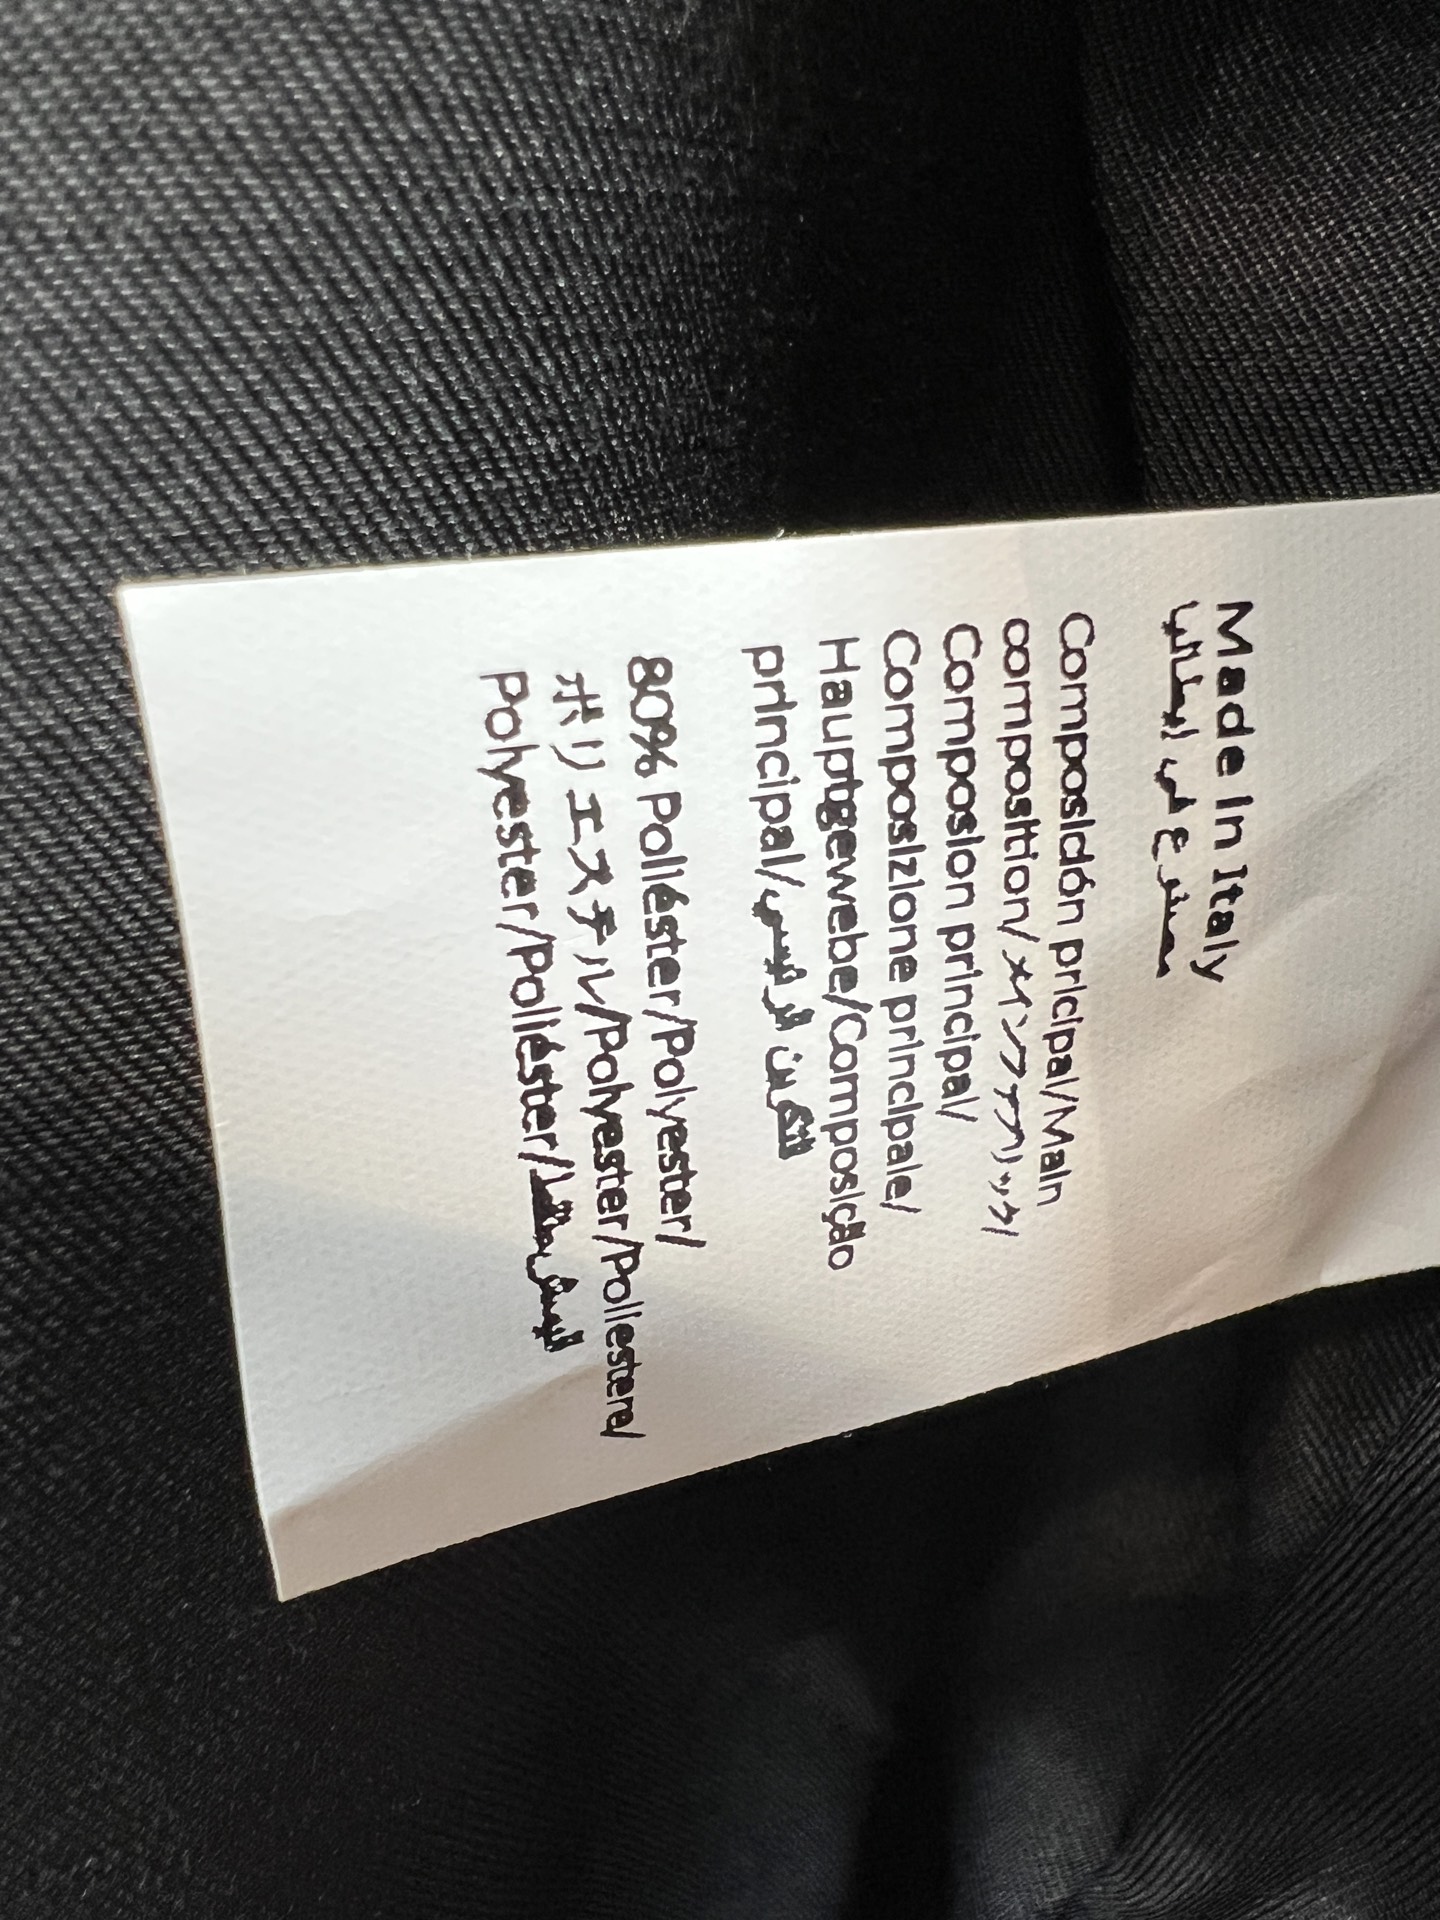 Made In Italy
مصنوع في إيطاليا
Composición pricipal/Main
composition/メインファブリック/
Composion principal/
Composizione principale/
Hauptgewebe/Composição
principal/التكوين الرئيسي
80% Poliéster/Polyester/
ポリエステル/Polyester/Poliestere/
Polyester/Poliéster/